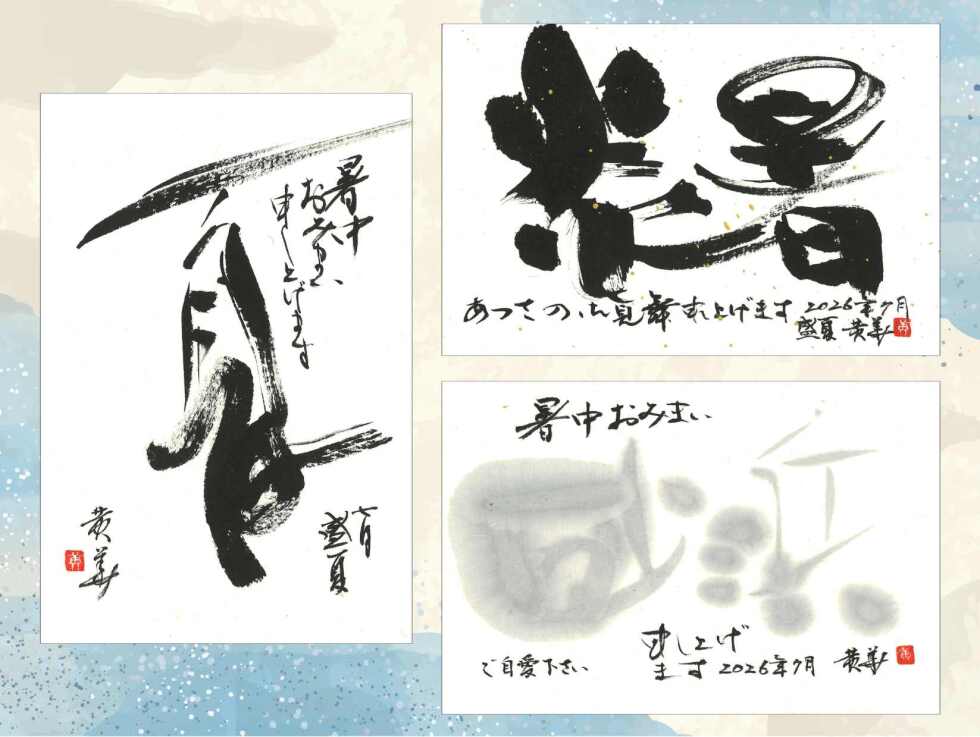 夏
暑中
おみまい
申し上げます
七月
盛夏
黄華
暑
あつさのお見舞申し上げます 2026年7月
盛夏 黄華
暑中おみまい
申し上げ
ます 2026年7月 黄華
ご自愛下さい